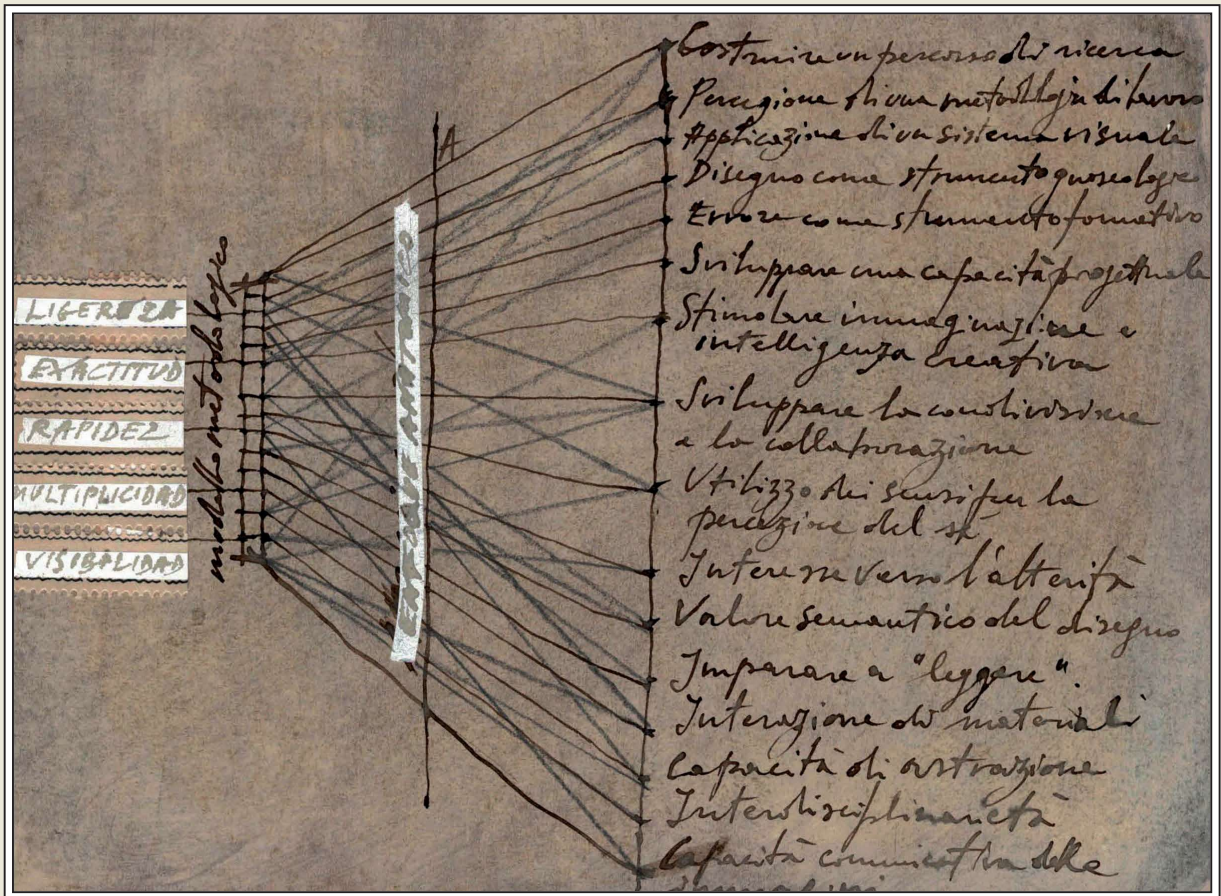 LIGEREZA
EXACTITUD
RAPIDEZ
MULTIPLICIDAD
VISIBILIDAD
modello metodologico
A
ENFOQUE ANATÓMICO
Costruire un percorso di ricerca
Percezione di una metodologia di lavoro
Applicazione di un sistema visuale
Disegno come strumento gnoseologico
Errore come strumento formativo
Sviluppare una capacità progettuale
Stimolare immaginazione e
intelligenza creativa
Sviluppare la condivisione
e la collaborazione
Utilizzo dei sensi per la
percezione del sé
Interesse verso l'alterità
Valore semantico del disegno
Imparare a "leggere".
Interazione di materiali
Capacità di astrazione
Interdisciplinarietà
Capacità comunicativa delle